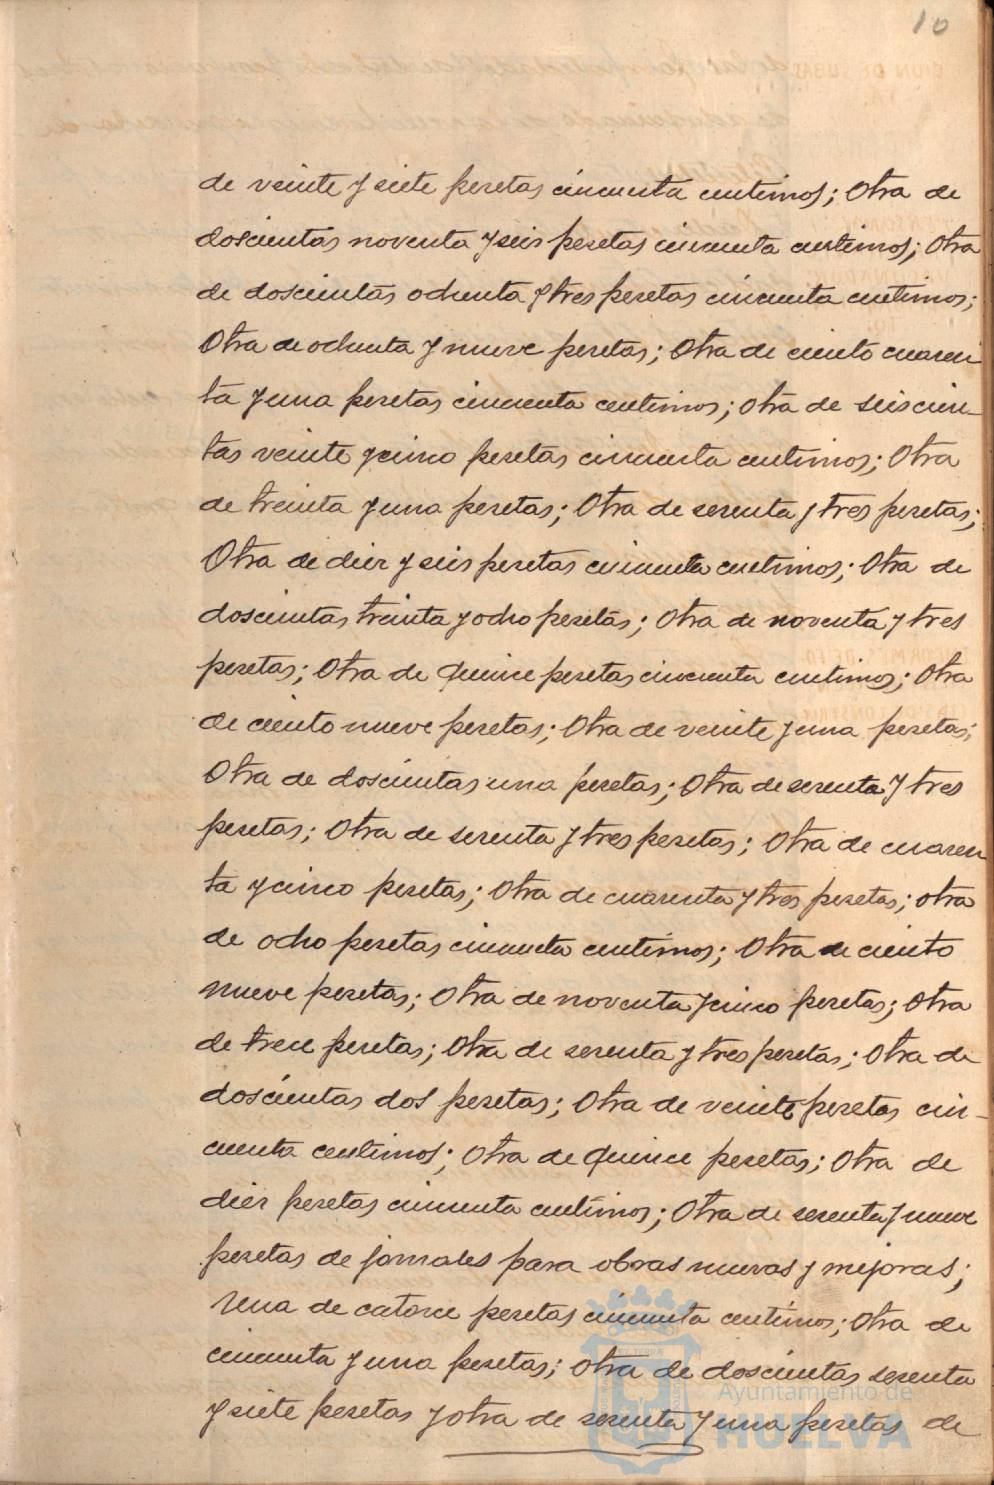 10
de veinte y siete pesetas cincuenta centimos; Otra de
doscientas noventa y seis pesetas cincuenta centimos; Otra
de doscientas ochenta y tres pesetas cincuenta centimos;
Otra de ochenta y nueve pesetas; Otra de ciento cuaren
ta y una pesetas cincuenta centimos; Otra de seiscien-
tas veinte y cinco pesetas cincuenta centimos; Otra
de treinta y una pesetas; Otra de sesenta y tres pesetas;
Otra de diez y seis pesetas cincuenta centimos; Otra de
doscientas treinta y ocho pesetas; Otra de noventa y tres
pesetas; Otra de quince pesetas cincuenta centimos; Otra
de ciento nueve pesetas; Otra de veinte y una pesetas;
Otra de doscientas una pesetas; Otra de sesenta y tres
pesetas; Otra de sesenta y tres pesetas; Otra de cuaren
ta y cinco pesetas; Otra de cuarenta y tres pesetas; otra
de ocho pesetas cincuenta centimos; Otra de ciento
nueve pesetas; Otra de noventa y cinco pesetas; Otra
de trece pesetas; Otra de sesenta y tres pesetas; Otra de
doscientas dos pesetas; Otra de veinte pesetas cin-
cuenta centimos; Otra de quince pesetas; Otra de
diez pesetas cincuenta centimos; Otra de sesenta y nueve
pesetas de jornales para obras nuevas y mejoras;
Una de catorce pesetas cincuenta centimos; Otra de
cincuenta y una pesetas; Otra de doscientas sesenta
y siete pesetas y otra de sesenta y una pesetas de
Ayuntamiento de
HUELVA